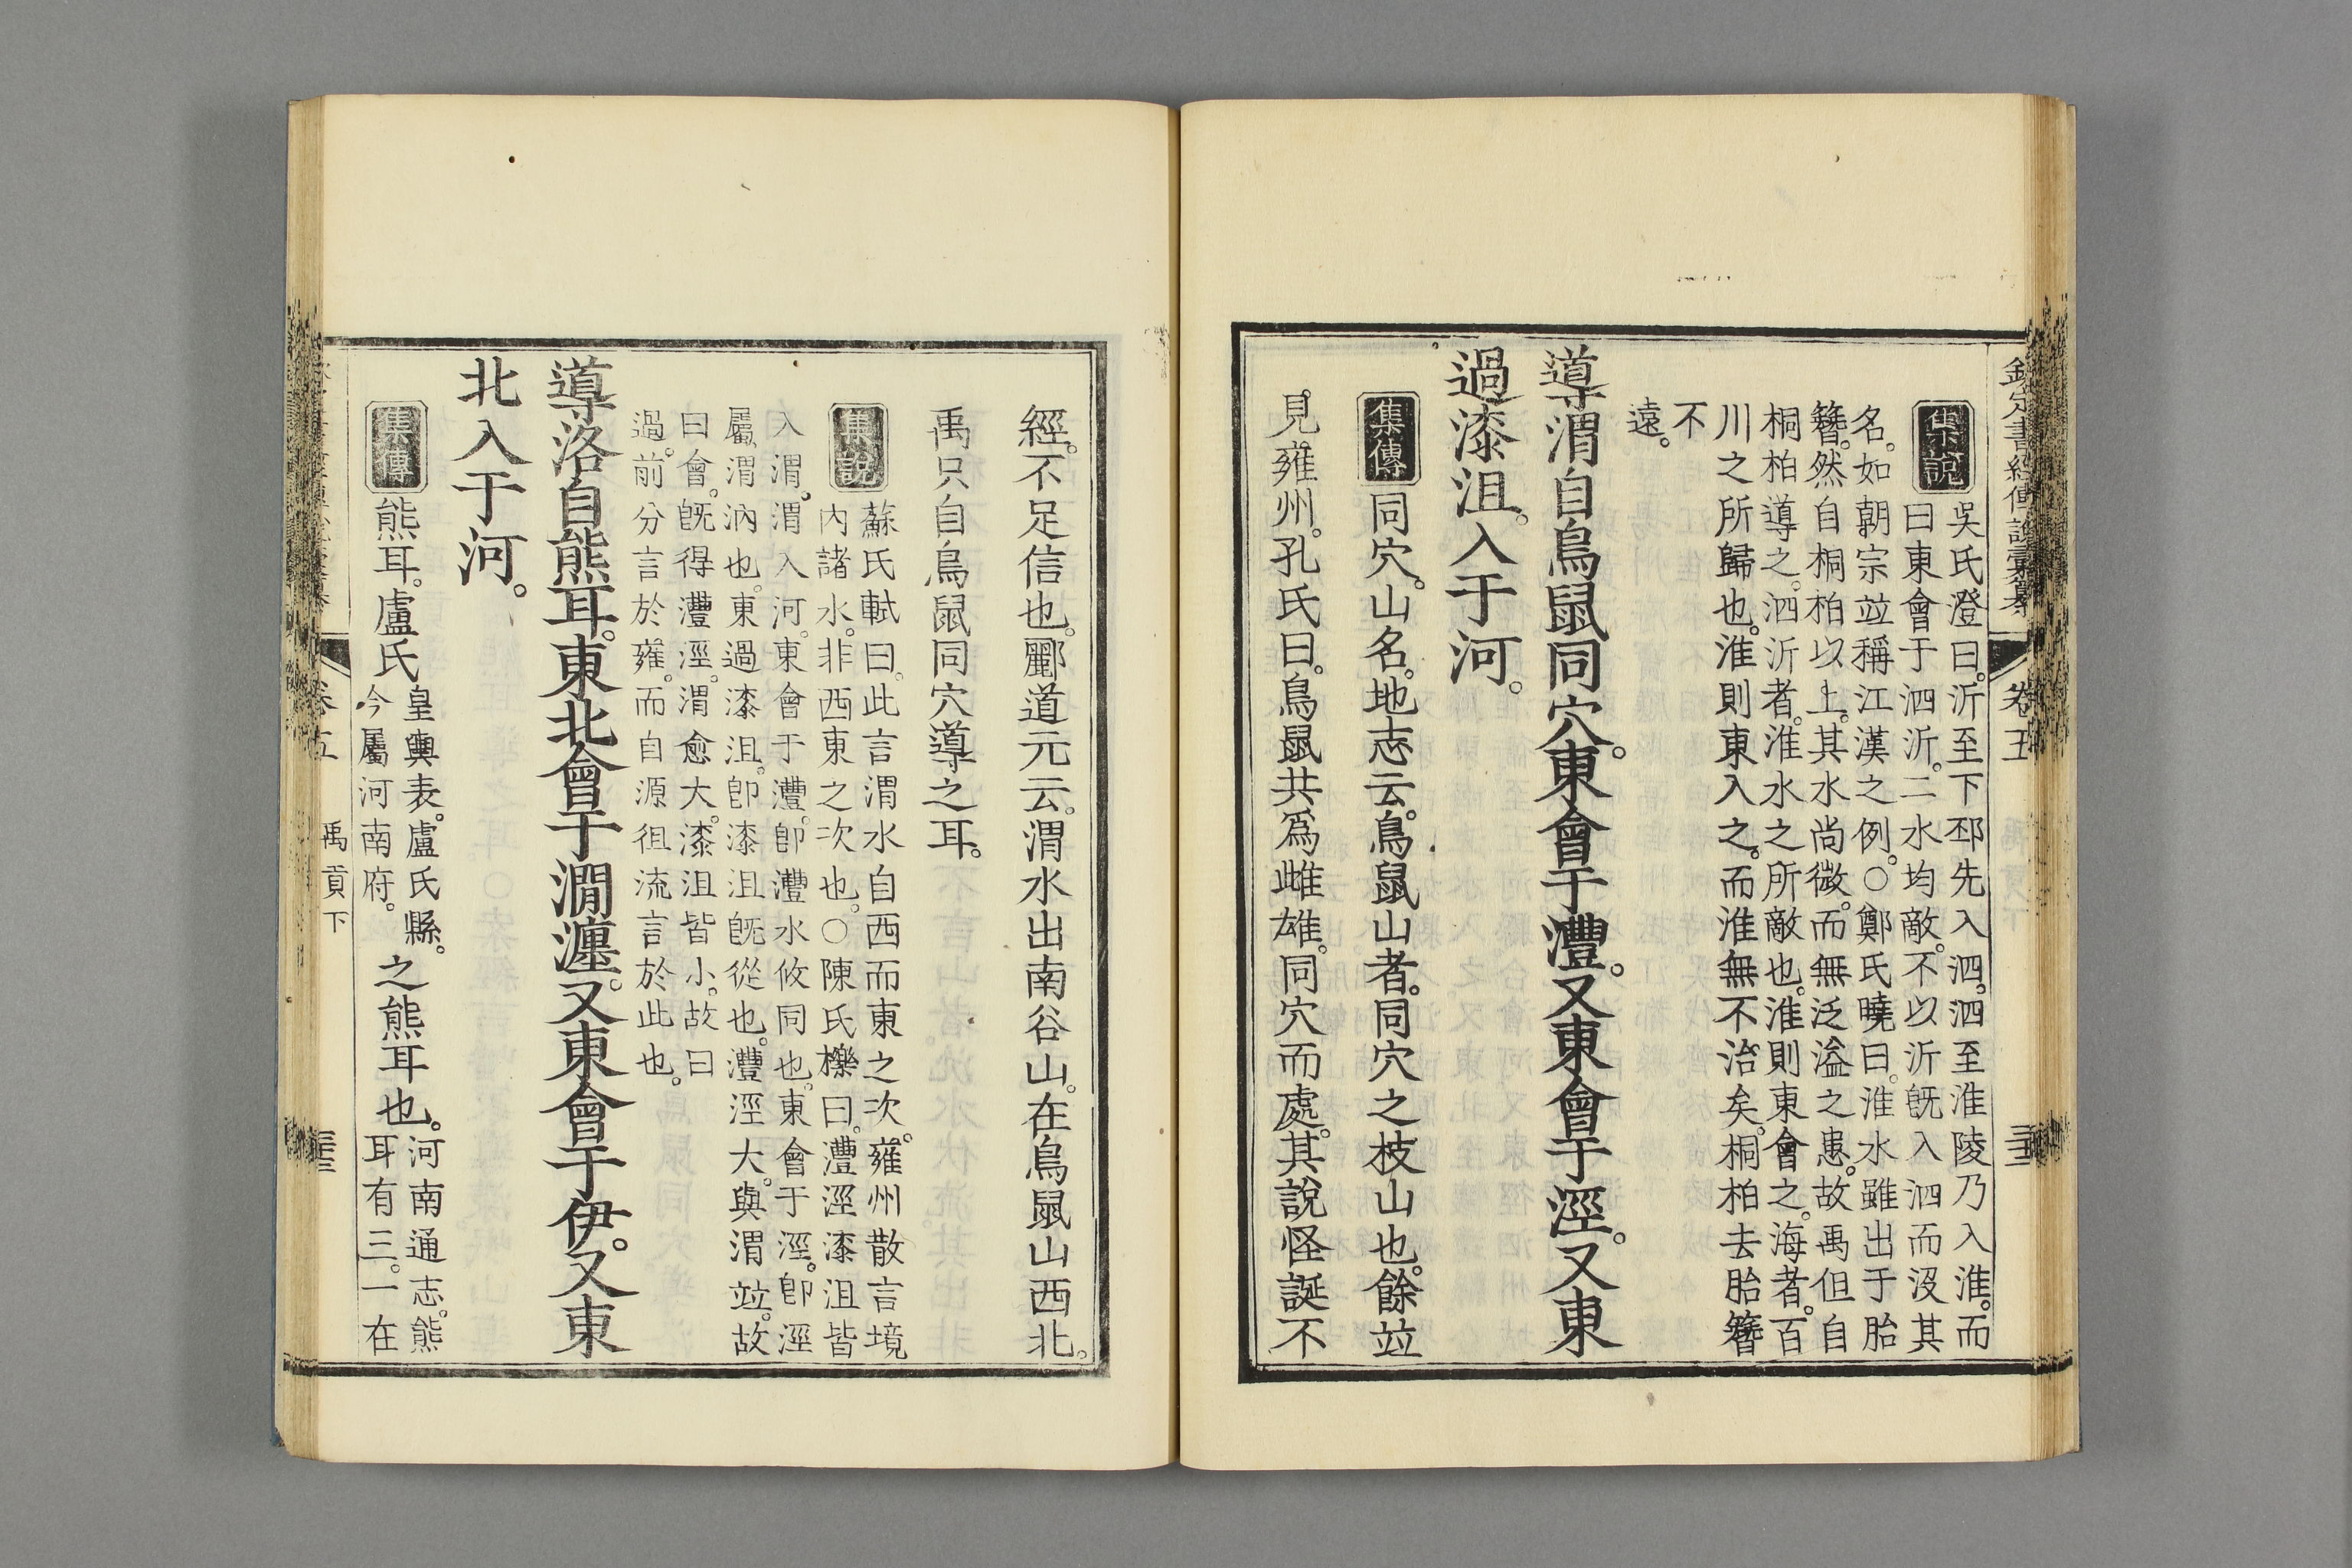 欽定書經傳說彙纂
卷五
集說
吳氏澄曰。沂至下邳先入泗。泗至淮陵乃入淮。而
曰東會于泗沂。二水均敵。不以沂旣入泗而沒其
名。如朝宗竝稱江漢之例。○鄭氏曉曰。淮水雖出于胎
簪。然自桐柏以上。其水尚微。而無泛溢之患。故禹但自
桐柏導之。泗沂者。淮水之所敵也。淮則東會之。海者。百
川之所歸也。淮則東入之。而淮無不治矣。桐柏去胎簪
不
遠。
導渭自鳥鼠同穴。東會于灃。又東會于涇。又東
過漆沮。入于河。
集傳
同穴。山名。地志云。鳥鼠山者。同穴之枝山也。餘竝
見雍州。孔氏曰。鳥鼠共爲雌雄。同穴而處。其說怪誕不
經。不足信也。酈道元云。渭水出南谷山。在鳥鼠山西北。
禹只自鳥鼠同穴導之耳。
集說
蘇氏軾曰。此言渭水自西而東之次。雍州散言境
內諸水。非西東之次也。○陳氏櫟曰。灃涇漆沮皆
入渭。渭入河。東會于灃。卽灃水攸同也。東會于涇。卽涇
屬渭汭也。東過漆沮。卽漆沮旣從也。灃涇大。與渭竝。故
曰會。旣得灃涇。渭愈大。漆沮皆小。故曰
過。前分言於雍。而自源徂流言於此也。
導洛自熊耳。東北會于澗瀍。又東會于伊。又東
北入于河。
集傳
熊耳。盧氏
皇輿表。盧氏縣。
今屬河南府。
之熊耳也。
河南通志。熊
耳有三。一在
卷五
禹貢下